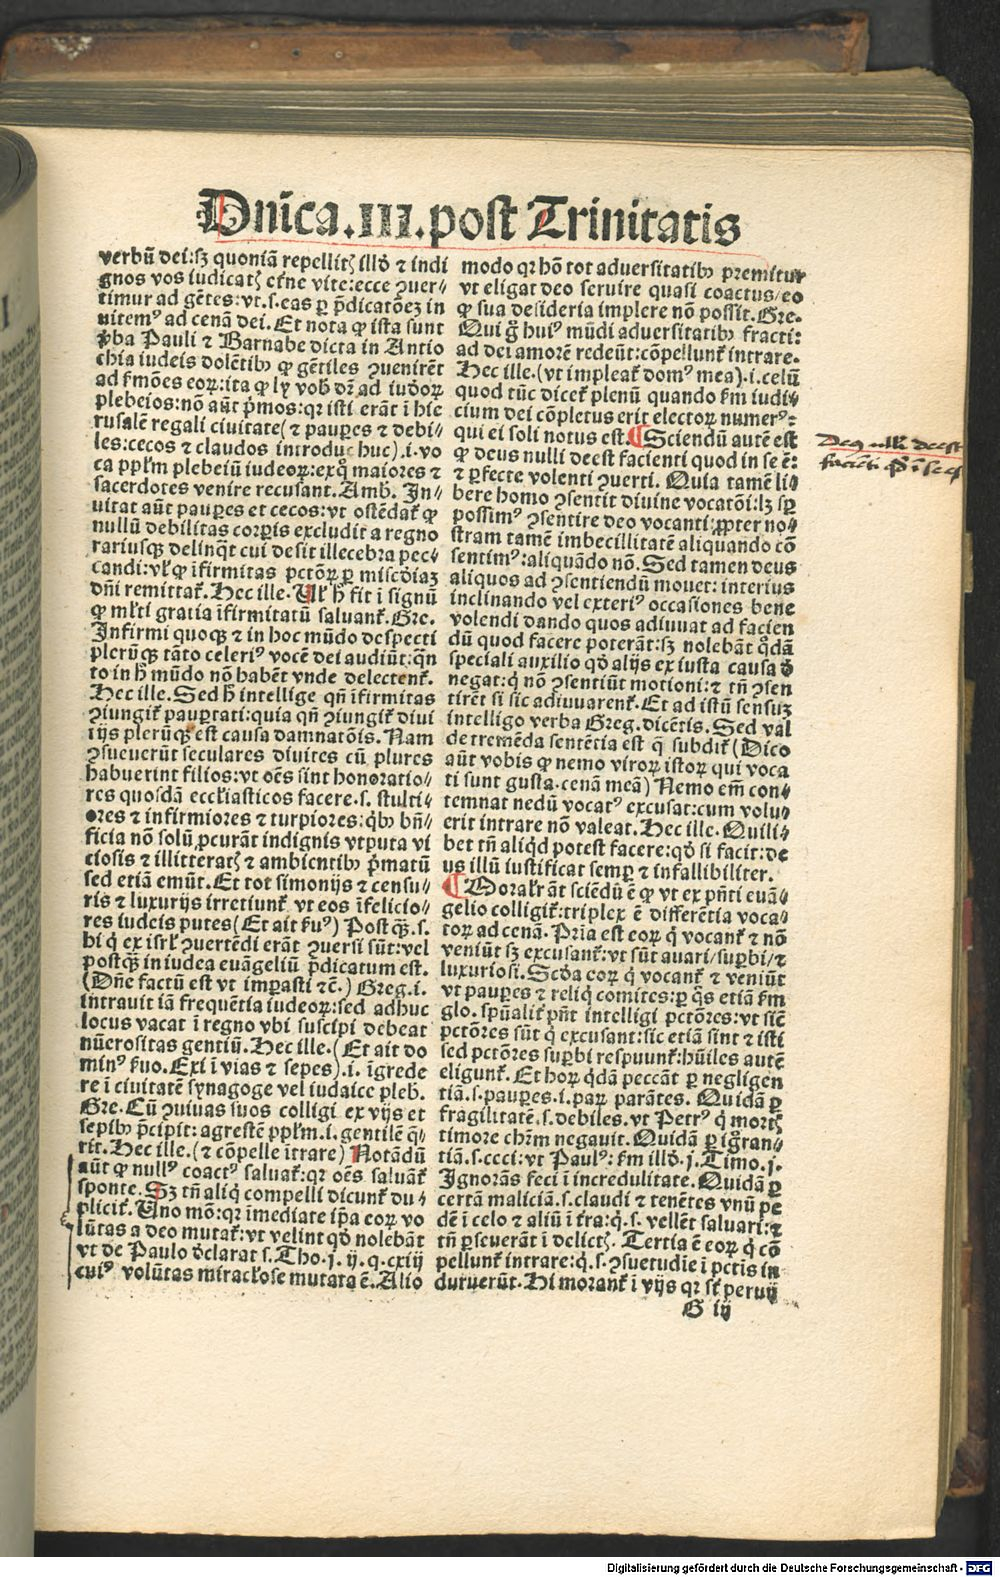 Dnīca.III.post Trinitatis
verbū dei:sꝫ quoniā repellitꝭ illď ⁊ indi
gnos vos iudicatꝭ et̄ne vite:ecce ꝯuer⸗
timur ad gētes:vt.s.eas ꝑ p̄dicatōeꝫ in
uitemꝰ ad cenā dei. Et nota ꝙ ista sunt
v̄ba Pauli ⁊ Barnabe dicta in Antio
chia iudeis dolētibꝫ ꝙ gētiles ꝯuenirēt
ad ẜmōes eoꝝ:ita ꝙ ly vob̄ dr̄ ad iudeoꝝ
plebeios:nō aūt p̄mos:qꝛ isti erāt ī hie
rusalē regali ciuitate(⁊ pauꝑes ⁊ debi⸗
les:cecos ⁊ claudos introduc huc).i.vo
ca pplm̄ plebeiū iudeoꝝ:exq̄ maiores ⁊
sacerdotes venire recusant. Amb. In⸗
uitat aūt pauꝑes ⁊ cecos:vt ostēdat᷑ ꝙ
nullū debilitas corꝑis excludit a regno
rariusqꝫ delinqͥt cui desit illecebra pec⸗
candi:vl̓ ꝙ īfirmitas pctōꝝ ꝑ miẜcdiaꝫ
dn̄i remittat᷑. Hec ille. Ul̓ h̄ fit ī signū
ꝙ ml̓ti gratia īfirmitatū saluant᷑. Gre.
Infirmi quoqꝫ ⁊ in hoc mūdo despecti
plerūqꝫ tāto celeriꝰ vocē dei audiūt:qn̄
to in h̄ mūdo nō habēt vnde delectent᷑.
Hec ille. Sed h̄ intellige qn̄ īfirmitas
ꝯiungit᷑ pauꝑtati:quia qn̄ ꝯiungit᷑ diui
tijs plerūqꝫ est causa damnatōis. Nam
ꝯsueuerūt seculares diuites cū plures
habuerint filios:vt oēs sint honoratio⸗
res quosdā eccl̓iasticos facere.s. stulti⸗
ores ⁊ infirmiores ⁊ turpiores:qͥbꝫ bn̄⸗
ficia nō solū ꝓcurāt indignis vtputa vi
ciosis ⁊ illitteratꝭ ⁊ ambientibꝫ p̄matū
sed etiā emūt. Et tot simonijs ⁊ censu⸗
ris ⁊ luxurijs irretiunt᷑ vt eos īfelicio⸗
res iudeis putes(Et ait ẜuꝰ) Postqꝫ.s.
hi qͥ ex isrl̓ ꝯuertēdi erāt ꝯuersi sūt:vel
postqꝫ in iudea euāgeliū p̄dicatum est.
(Dn̄e factū est vt imꝑasti ⁊ē.) Greg.i.
intrauit iā frequētia iudeoꝝ:sed adhuc
locus vacat ī regno vbi suscipi debeat
nūerositas gentiū. Hec ille. (Et ait do
minꝰ ẜuo. Exi ī vias ⁊ sepes).i. īgrede
re ī ciuitatē synagoge vel iudaice pleb.
Gre. Cū ꝯuiuas suos colligi ex vijs et
sepibꝫ p̄cipit: agrestē pplm̄.i. gentilē q̄⸗
rit. Hec ille.(⁊ cōpelle ītrare) Notādū
aūt ꝙ nullꝰ coactꝰ saluat᷑:qꝛ oēs saluāt᷑
sponte. Sꝫ tn̄ aliqͥ compelli dicunt᷑ du⸗
plicit᷑. Uno mō:qꝛ īmediate ip̄a eoꝝ vo
lūtas a deo mutat᷑:vt velint qď nolebāt
vt de Paulo ďclarat s.Tho.j.ij.q.cxiij
cuiꝰ volūtas miracl̓ose mutata ē. Alio
modo qꝛ hō tot aduersitatibꝫ premitur
vt eligat deo seruire quasi coactus/eo
ꝙ sua desideria implere nō possit. Gre.
Qui g̊ huiꝰ mūdi aduersitatibꝫ fracti:
ad dei amorē redeūt:cōpellunt᷑ intrare.
Hec ille.(vt impleat᷑ domꝰ mea).i.celū
quod tūc dicet᷑ plenū quando ẜm iudi⸗
cium dei cōpletus erit electoꝝ numerꝰ:
qui ei soli notus est. ¶Sciendū autē est
ꝙ deus nulli deest facienti quod in se ē:
⁊ ꝑfecte volenti ꝯuerti. Quia tamē li⸗
bere homo ꝯsentit diuine vocatōi:lꝫ sꝑ
possimꝰ ꝯsentire deo vocanti:ꝓpter no⸗
stram tamē imbecillitatē aliquando cō
sentimꝰ:aliquādo nō. Sed tamen deus
aliquos ad ꝯsentiendū mouet: interius
inclinando vel exteriꝰ occasiones bene
volendi dando quos adiuuat ad facien
dū quod facere poterāt:sꝫ nolebāt qͦdā
speciali auxilio qď alijs ex iusta causa ď
negat:qͥ nō ꝯsentiūt motioni:⁊ tn̄ ꝯsen
tirēt si sic adiuuarent᷑. Et ad istū sensuꝫ
intelligo verba Greg. dicētis. Sed val
de tremēda sentētia est q̄ subdit᷑(Dico
aūt vobis ꝙ nemo viroꝝ istoꝝ qui voca
ti sunt gusta.cenā meā) Nemo em̄ con⸗
temnat nedū vocatꝰ excusat:cum volu⸗
erit intrare nō valeat. Hec ille. Quili⸗
bet tn̄ aliqͥd potest facere:qď si facit:de
us illū iustificat semꝑ ⁊ infallibiliter.
¶Moral̓r āt sciēdū ē ꝙ vt ex pn̄ti euā⸗
gelio colligit᷑:triplex ē differētia voca⸗
toꝝ ad cenā. Pria est eoꝝ qͥ vocant᷑ ⁊ nō
veniūt sꝫ excusant᷑:vt sūt auari/suꝑbi/⁊
luxuriosi. Scďa eoꝝ qͥ vocant᷑ ⁊ veniūt
vt pauꝑes ⁊ reliqͥ comites:ꝑ qͦs etiā ẜm
glo. spūalit᷑ pn̄t intelligi pctōres:vt siē
pctōres sūt qͥ excusant:sic etiā sint ⁊ isti
sed pctōres suꝑbi respuunt᷑:hūiles autē
eligunt᷑. Et hoꝝ qͥdā peccāt ꝑ negligen
tiā.s.pauꝑes.i.paꝝ parātes. Quidā ꝑ
fragilitatē.s.debiles.vt Petrꝰ qͥ mortꝭ
timore chr̄m negauit. Quidā ꝑ igͦran⸗
tiā.s.ceci:vt Paulꝰ: ẜm illď.j.Timo.j.
Ignorās feci ī incredulitate. Quidā ꝑ
certā maliciā.s.claudi ⁊ tenētes vnū pe
dē ī celo ⁊ aliū ī t᷑ra:qͥ.s. vellēt saluari:⁊
tn̄ ꝑseuerāt ī delictꝭ. Tertia ē eoꝝ qͥ cō
pellunt᷑ intrare:qͥ.s.ꝯsuetudie ī pctis in
duruerūt. Hi morant᷑ ī vijs qꝛ st̄ peruij
G iij
Deꝰ nulli deest
faciēti qď ī se ē
Digitalisierung gefördert durch die Deutsche Forschungsgemeinschaft - DFG